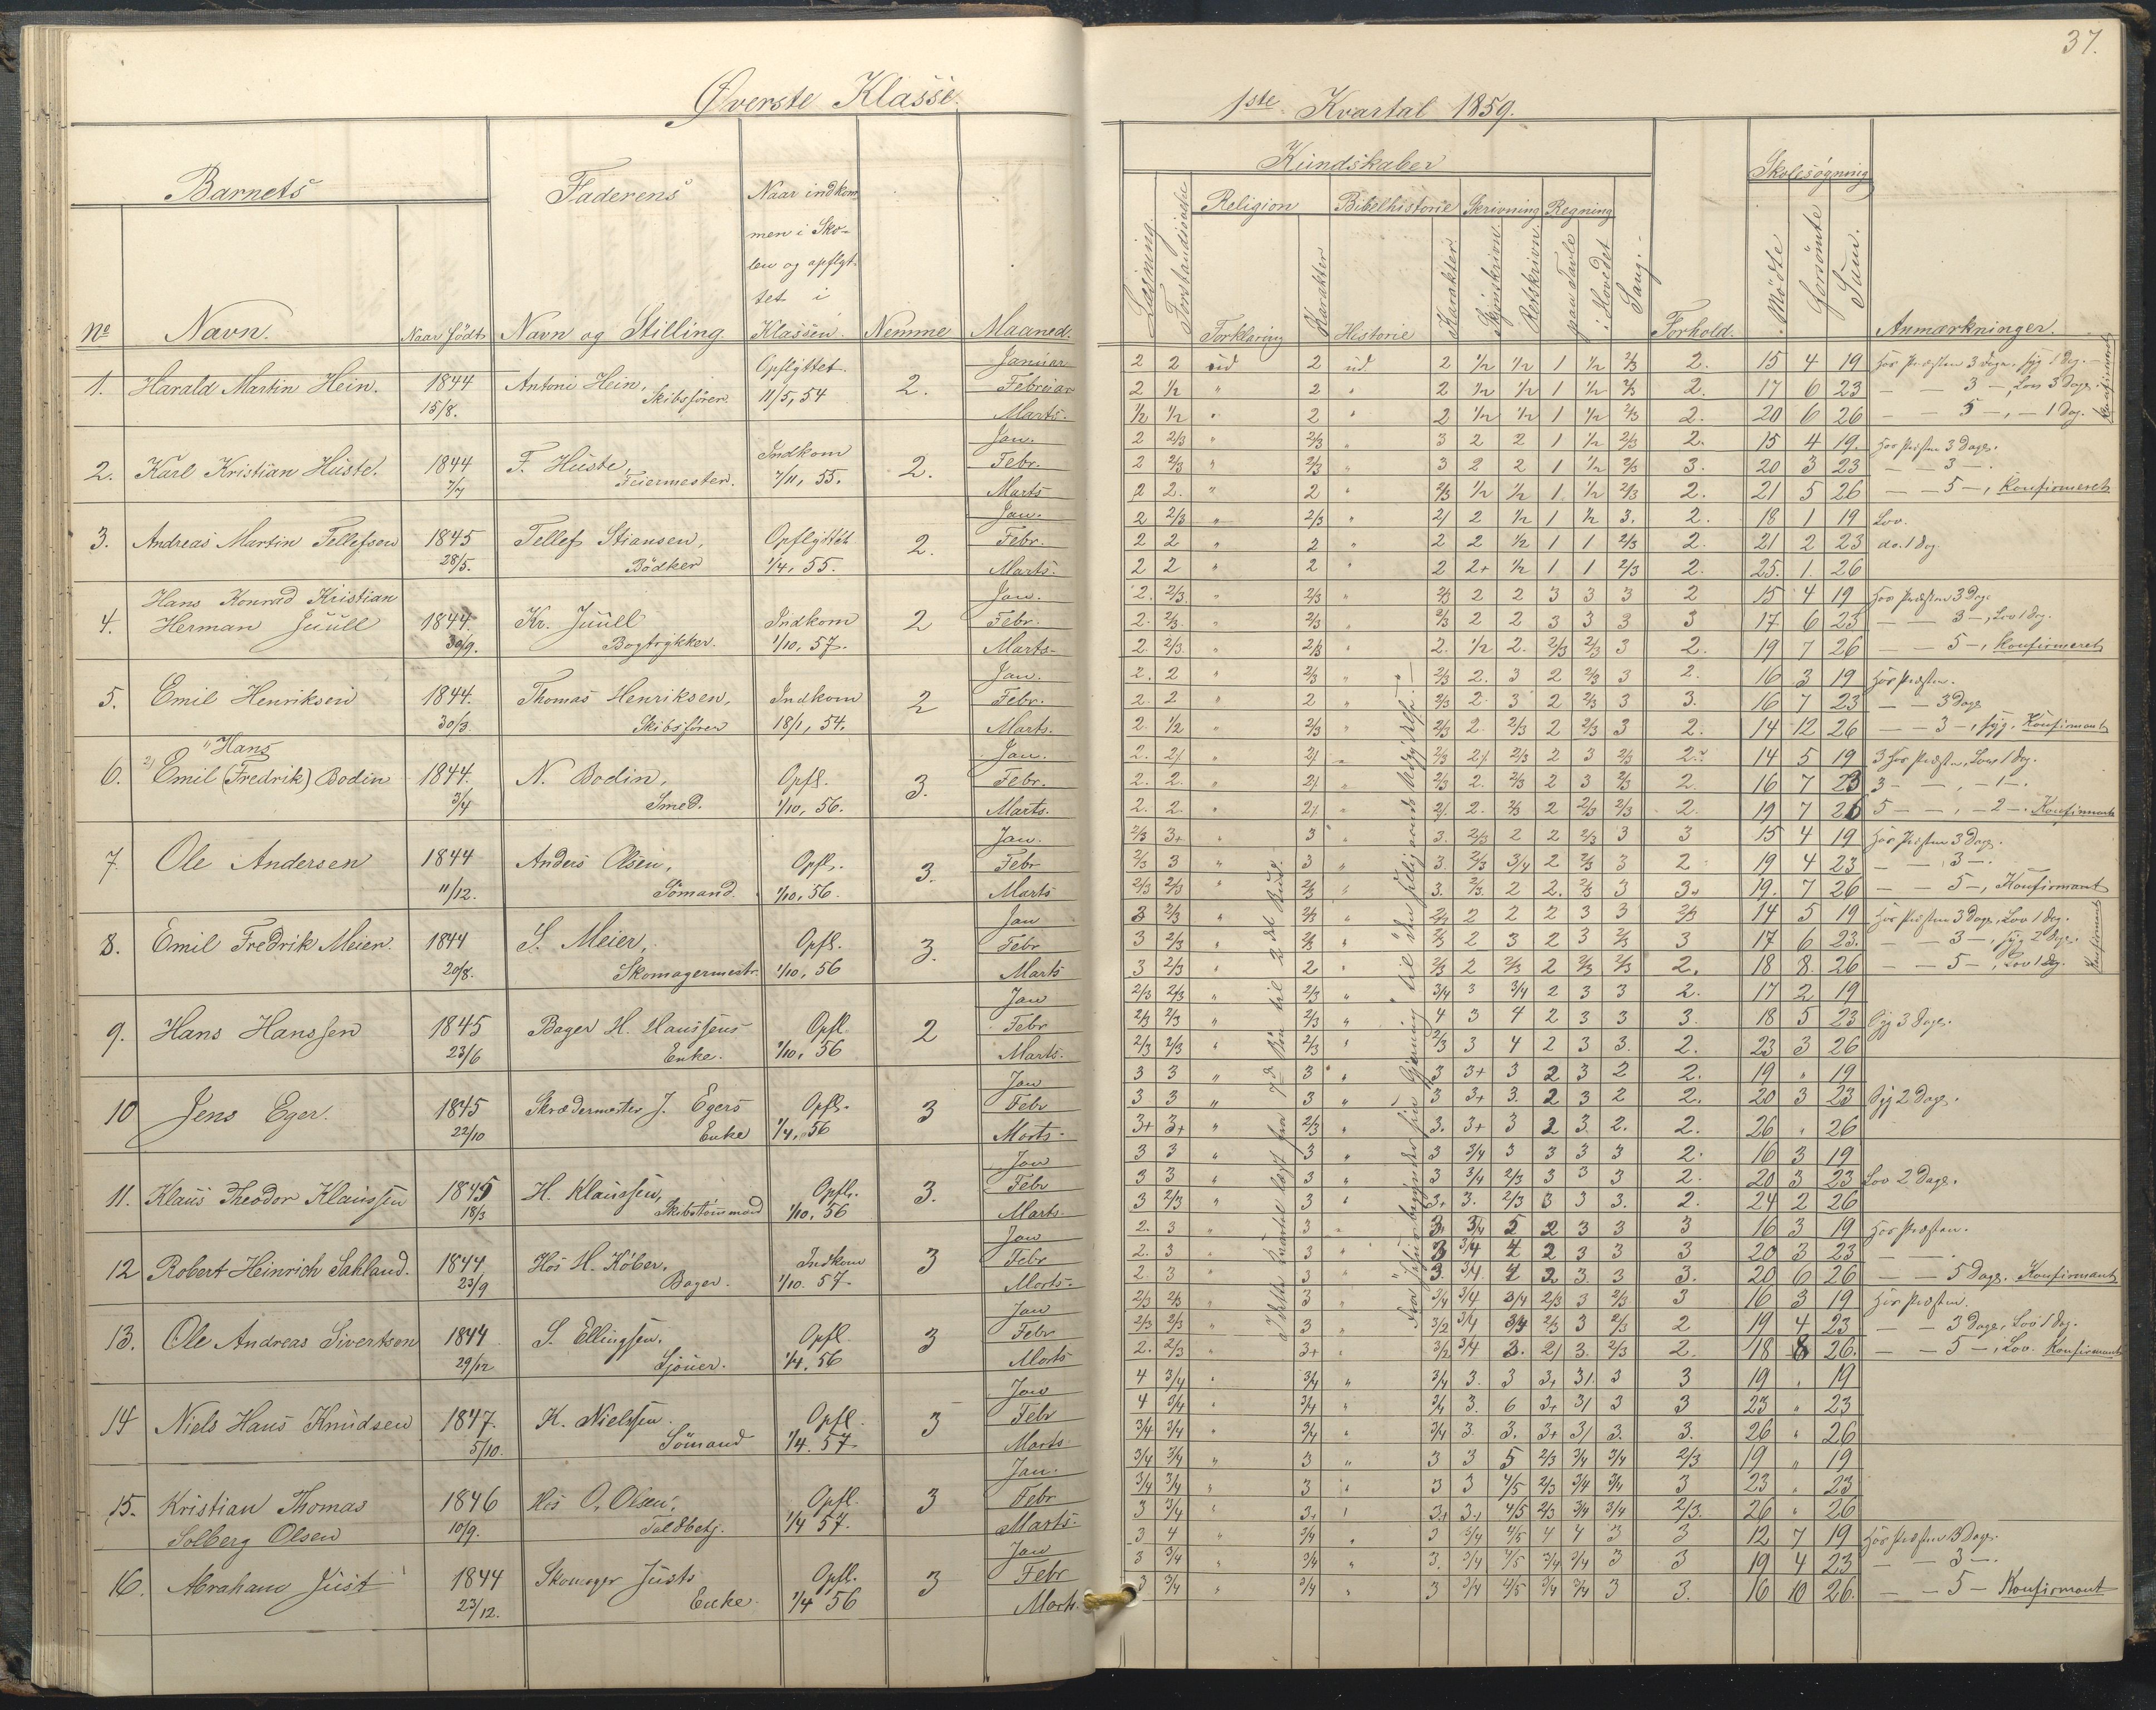 Øverste Klasse.
Barnets
Faderens
Naar indkom
men i Sko-
len og opflyt-
tet i
Klassen.
No Navn. Naar födt. Navn og Stilling. Nemme Maaned.
Opflyttet. Januar
1. Harald Martin Hein. 1844 Antoni Hein, 2. Februar
15/8. Skibsfører 11/5, 54 Marts.
Jan.
2. Karl Kristian Huste. 1844 F. Huste, Indkom 2. Febr.
7/7 Feiermester. 7/11, 55. Marts
Jan.
3. Andreas Martin Tellefsen 1845 Tellef Stiansen, Opflyttet 2. Febr.
28/5. Bödker 1/4, 55. Marts.
Hans Konrad Kristian Jan.
4. Herman Juull 1844. Kr. Juull Indkom 2 Febr.
30/9. Bogtrykker. 1/10, 57. Marts
Jan.
5. Emil Henriksen 1844. Thomas Henriksen, Indkom 2 Febr.
30/3. Skibsfører 18/1, 54. Marts.
Hans Jan.
6. Emil (Fredrik) Bodin 1844. N. Bodin, Opfl. 3. Febr.
3/4 Smed. 1/10, 56. Marts.
Jan.
7. Ole Andersen 1844 Anders Olsen, Opfl. 3. Febr
11/12. Sömand. 1/10, 56. Marts
Jan
8. Emil Fredrik Meier. 1844 S. Meier, Opfl. 3. Febr
20/8. Skomagermestr. 1/10, 56 Marts
Jan
9. Hans Hanssen 1845 Bager H. Hanssens Opfl. 2 Febr
23/6 Enke. 1/10, 56 Marts.
Jan
10 Jens Eger. 1845 Skrædermester J. Egers Opfl. 3 Febr
22/10 Enke 1/4, 56 Marts.
Jan
11. Klaus Theodor Klaussen 1845 H. Klaussen, Opfl. 3. Febr
18/3 Skibstömmand 1/10, 56 Marts.
Jan
12 Robert Heinrich Sakland. 1844 Hos H. Köber, Indkom 3 Febr
23/9 Bager. 1/10. 57. Marts.
Jan
13. Ole Andreas Sivertsen 1844 S. Ellingsen. Opfl. 3 Febr
29/12 Sjouer. 1/4. 56 Marts
Jan
14 Niels Hans Knudsen 1847. K. Nielssen. Opfl. 3 Febr
5/10. Sömand 1/4. 57 Marts
Jan.
15. Kristian Thomas 1846 Hos O. Olsen, Opfl. 3 Febr
Solberg Olsen 10/9. Toldbetj. 1/4 57. Marts.
Jan
16. Abraham Just 1844 Skomager Justs Opfl. 3 Febr
23/12. Enke. 1/4 56 Marts.
37.
1ste Kvartal 1859.
Kundskaber
Skolesøgning
Religion Bibelhistorie Skrivning Regning
Læsning. Forstandsøvelse Forklaring Karakter Historie Karakter. Skjönskrivn. Retskrivn. paa Tavle i Hovedet Sang. Forhold. Mødte Forsömte Sum. Anmærkninger.
2 2 ud 2 ud 2 1/2 1/2 1 1/2 2/3 2. 15 4 19 Hos Præsten 3 Dage, syg 1 Dag.
2 1/2 " 2 " 2 1/2 1/2 1 1/2 2/3 2. 17 6 23 — 3 —, Lov 3 Dage.
1/2 1/2 " 2 " 2 1/2 1/2 1 1/2 2/3 2. 20 6 26 — 5 —, — 1 Dag.
Konfirmeret
2 2/3 " 2/3 " 3 2 2 1 1/2 2/3 2. 15 4 19. Hos Præsten 3 Dage.
2 2/3 " 2/3 " 3 2 2 1 1/2 2/3 3. 20 3 23 — — 3 —.
2 2. " 2 " 2/3 1/2 1/2 1 1/2 2/3 2. 21 5 26 — — 5 —, Konfirmeret
2 2/3 " 2/3 " 2/ 2 1/2 1 1/2 3. 2. 18 1 19 Lov.
2 2 " 2 " 2 2 1/2 1 1 2/3 2. 21 2 23 do. 1 Dag
2 2 " 2 " 2 2+ 1/2 1 1 2/3 2. 25. 1. 26
2. 2/3. " 2/3 " 2/3 2 2 3 3 3 2 15 4 19 Hos Præsten 3 Dage
2. 2/3. " 2/3 " 2/3 2 2 3 3 3 3 17 6 23 — — 3 —, Lov 1 Dag.
2. 2/3. " 2/3 " 2. 1/2 2. 2/3 2/3 3 2. 19 7 26 — — 5 —, Konfirmeret
2. 2 " 2/3 " 2/3 2. 3 2 2/3 3 2. 16 3 19 Hos Præsten.
2. 2 " 2 " 2/3 2. 3 2 2/3 3 3. 16 7 23 — — 3 Dage
2. 1/2 " 2/3 " 2/3 2. 2/3 2 2/3 3 2. 14 12 26 — — 3 —, syg. Konfirmant
2. 2/. " 2/. " 2/3 2/. 2/3 2 3 2/3 2. 14 5 19 3 Hos Præsten, Lov 1 Dag.
2. 2. " 2/. " 2/3 2. 2/3 2 3 2/3 2. 16 7 23 3 — —, — 1 —.
2. 2. " 2/. " 2/. 2. 2/3 2 2/3 2/3 2. 19 7 26 5 — —, — 2 —. Konfirmant
2/3 3+ " 3 " 3. 2/3 2 2 2/3 3 3 15 4 19 Hos Præsten 3 Dage.
2/3 3 " 3 " 3. 2/3 3/4 2 2/3 3 2 19 4 23 — — 3 —.
2/3 2/3 " 2/3 " 3. 2/3. 2 2. 2/3 3 3+ 19. 7 26 — — 5 —, Konfirmant
3 2/3 " 2/3 " 2/3 2 2 2 3 3 2/3 14 5 19 Hos Præsten 3 Dage, Lov 1 Dag.
3 2/3 " 2/3 " 2/3 2 3 2 3 2/3 3 17 6 23. — — 3 —, syg 2 Dage.
3 2/3 " 2 " 2/3 2 2/3 2 2/3 2/3 2. 18 8. 26 — — 5 —, Lov 1 Dag.
Konfirmant
2/3 2/3 " 2/3 " 3/4 3 3/4 2 3 3 2. 17 2 19
2/3 2/3 " 2/3 " 4 3 4 2 3 3 3. 18 5 23 Syg 3 Dage.
2/3 2/3 " 2/3 " 2/3 3 4 2 3 3. 2. 23 3 26
3 3 " 3 " 3 3+ 3 2 3 2 2. 19 " 19
3 3 " 3 " 3 3+ 3. 2 3 2 2. 20 3 23 Syg 2 Dage.
3+ 3+ " 2/3 " 3. 3+ 3 2 3. 2. 2. 26 " 26
3 3 " 3 " 3 3/4 3 3 3 3 2. 16 3 19
3 3 " 3 " 3 3/4 2/3 3 3 3 2. 20 3 23 Lov 2 Dage.
3 2/3 " 3 " 3+ 3. 2/3 3 3 3. 2. 24 2 26
2. 3 " 3 " 3. 3/4 5 2 3 3 3 16 3 19 Hos Præsten.
2. 3 " 3 " 3 3/4 4 2 3 3 3 20 3 23 — — .
2. 3 " 3 " 3. 3/4. 4 2 3. 3 3. 20 6 26 — — 5 Dage. Konfirmant
2/3 2/3 " 3 " 3/4 3/4 3/4 2/3 3 2/3 3 16 3 19 Hos Præsten.
2/3 2/3 " 3 " 3/2 3/4 3/4 2/3 3 2/3 2 19 4 23 — — 3 Dage, Lov 1 Dag.
2. 2/3 " 3+ " 3/2 3/4 3. 2/ 3. 2/3 2. 18 8 26. — — 5 —, Lov. Konfirmant
4 3/4 " 3/4 " 3/4 3. 3 3+ 3/. 3 3 19 " 19
4 3/4 " 3/4 " 3/4 3. 6 3+ 3/ 3 3 23 " 23
3/4 3/4 " 3/4 " 3/4 3. 3. 3+ 3/ 3. 3. 26 " 26
3/4 3/4 " 3 " 3 3 5 2/3 3/4 3/4 2/3 19 " 19
3/4 3/4 " 3 " 3 3 4/5 2/3 3/4 3/4 3 23 " 23
3 3/4 " 3+ " 3+ 3+ 4/5 2/3 3/4 3/4 2/3. 26 " 26
3 4 " 3/4 " 3 3/4 4/5 4 4 3 3 12 7 19 Hos Præsten 3 Dage.
3 3/4 " 3/4 " 3. 3/4 4/5 3/4 3/4 3 3 19 4 23 — — 3 —.
3 3/4 " 3/4 " 3 3/4 4/5 3/4 3/4 3 3. 16 10 26. — — 5 — Konfirmant